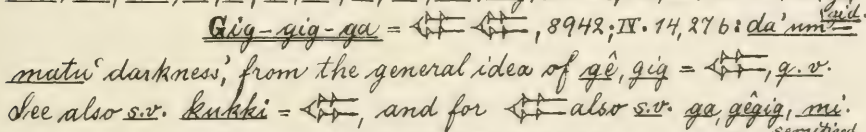 Gig-gig-ga = 𒈪 𒈪, 8942; IV. 14, 27 b: da'um-
matu 'darkness', from the general idea of gê, gig = 𒈪, q.v.
See also s.v. kukki = 𒈪, and for 𒈪 also s.v. ga, gêgig, mi.